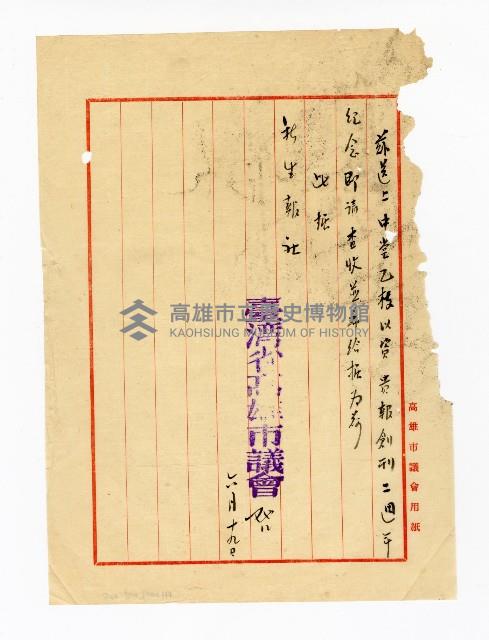 茲送上中堂乙枝以資 貴報創刊二週年
紀念即請查收並希給據為荷
此據
新生報社
臺灣省高雄市議會 啓
六月十九日
高雄市議會用紙
高雄市立歷史博物館
KAOHSIUNG MUSEUM OF HISTORY